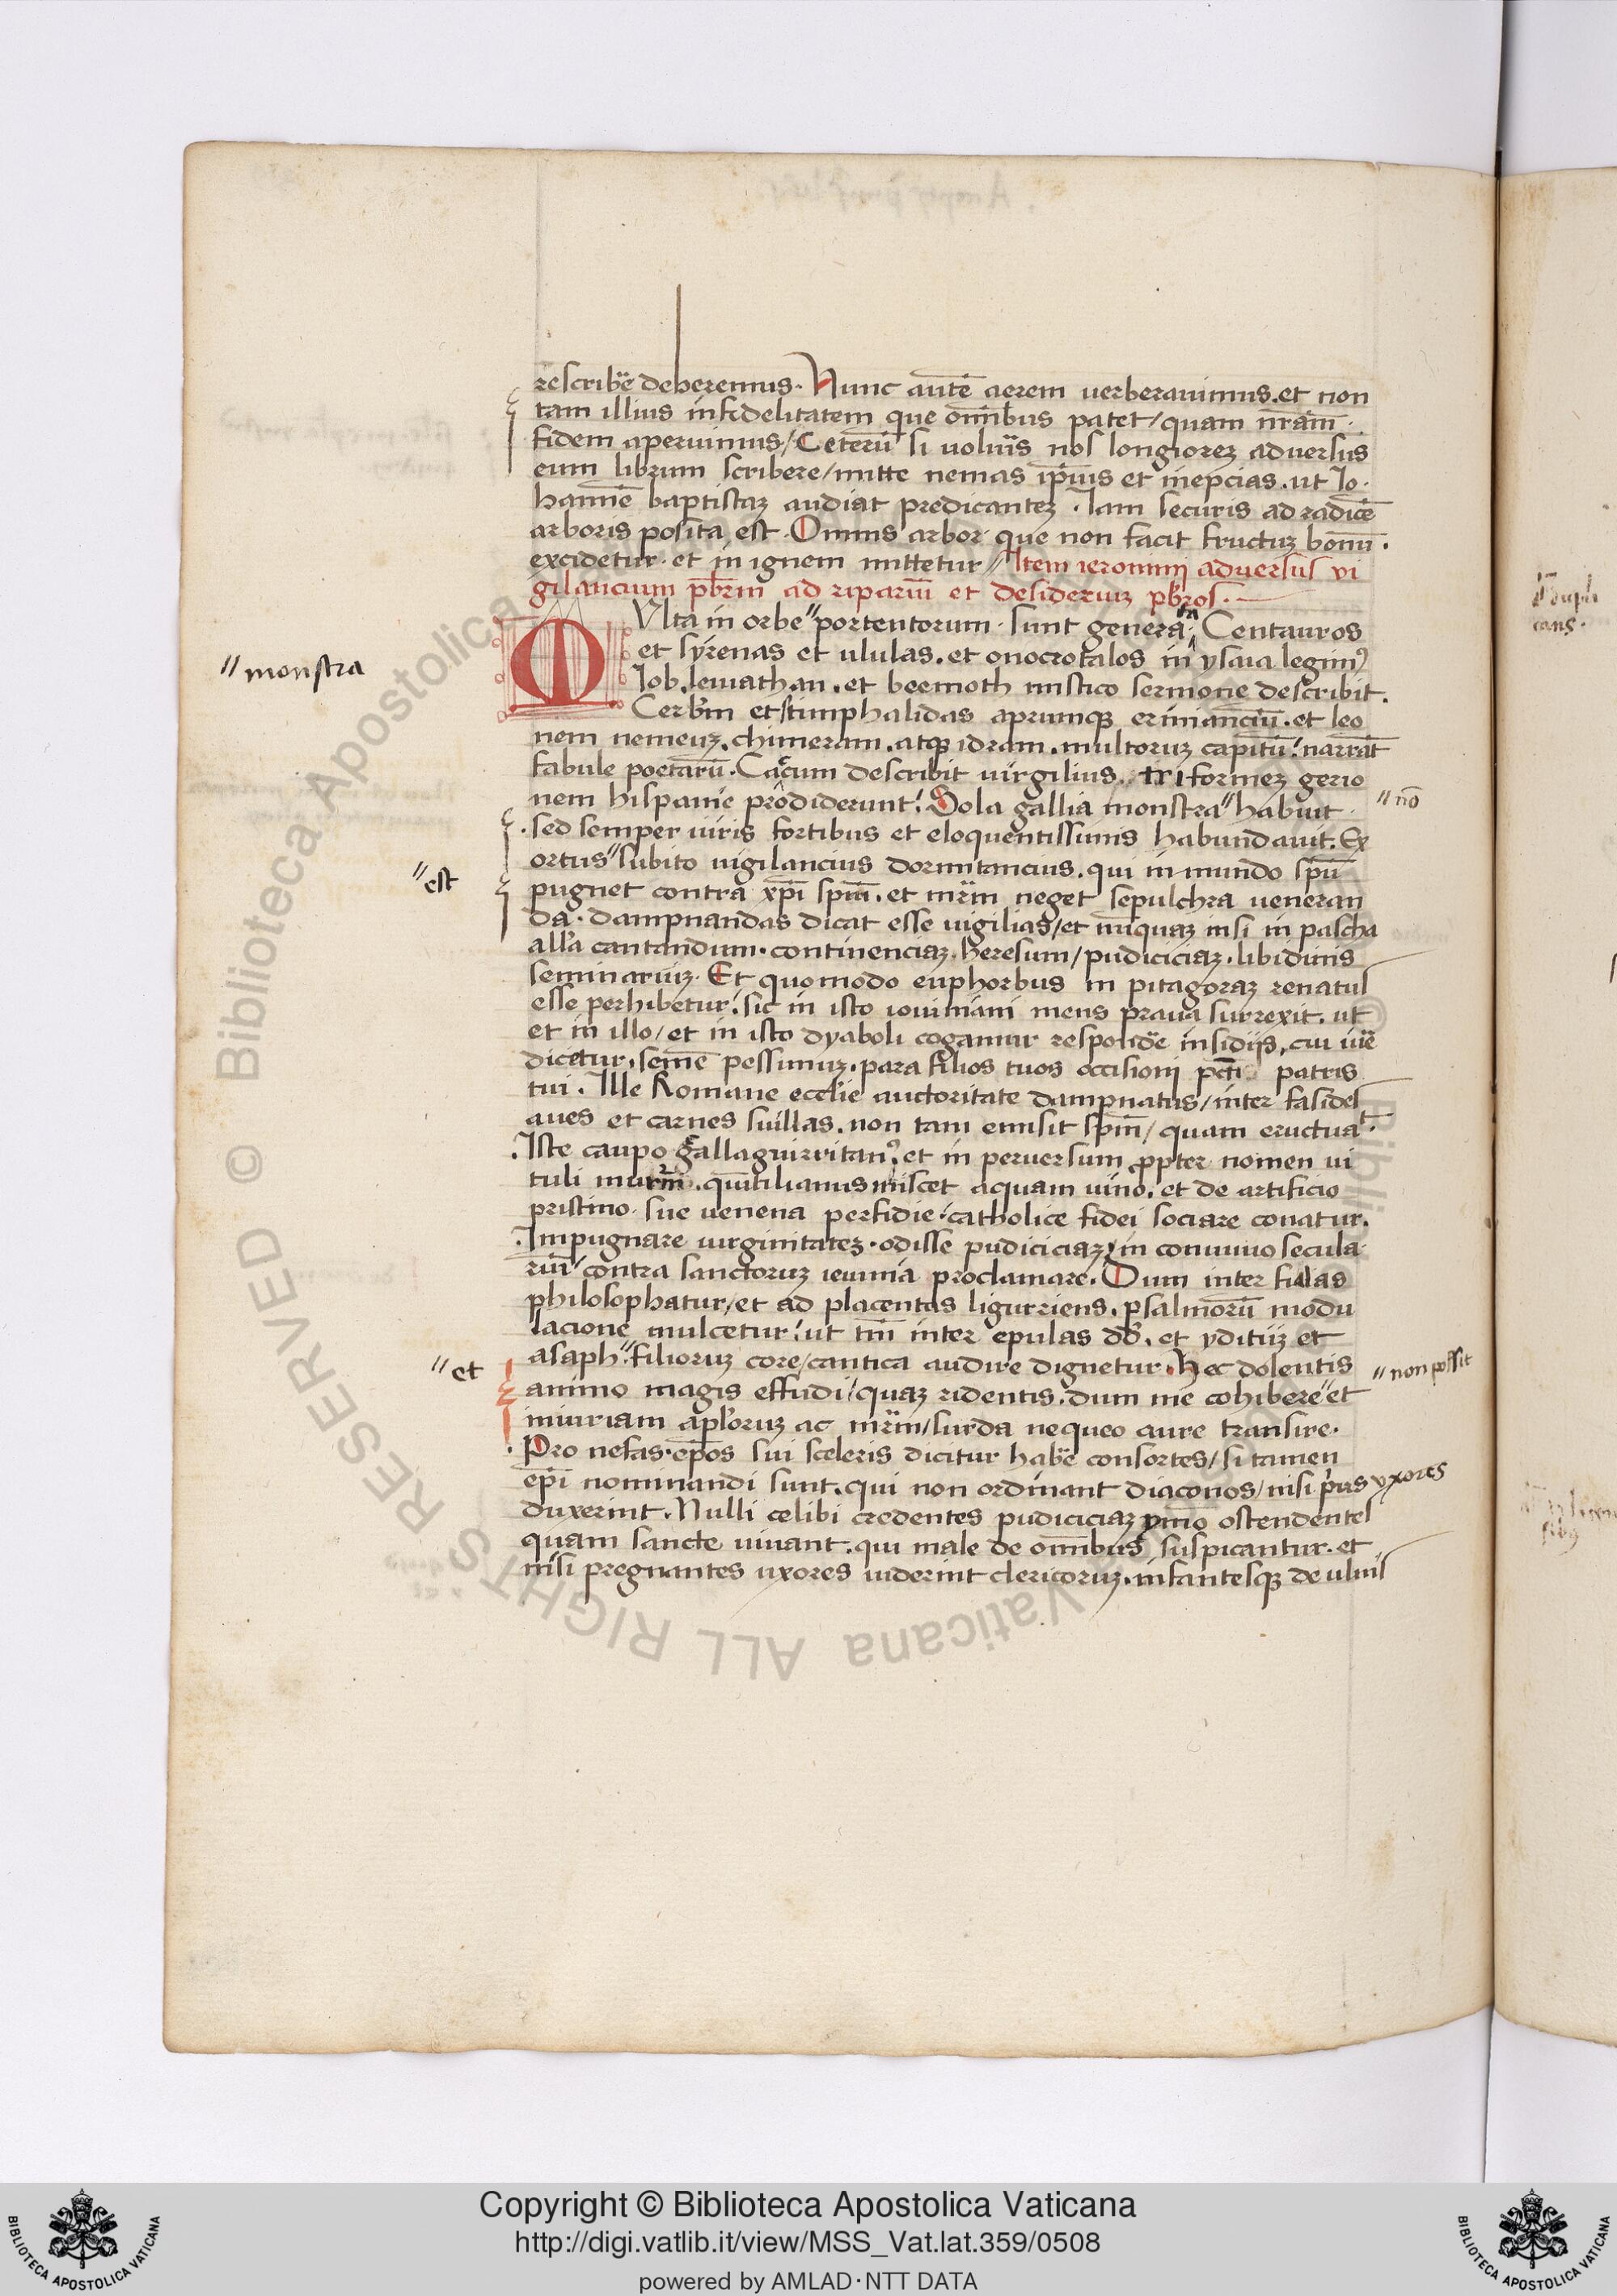 rescribe͂ deberemus. Nunc aute͂ aerem uerberauimus. et non
tam illius infidelitatem que om̅ibus patet/ quam nr̅am
fidem aperuimus/ Ceteru̅ si uoluis̅ nos longioreʒ aduersus
eum librum scribere/ mitte nemas ip̅ius et inepcias. ut Io·
hanne̅ baptistaʒ audiat predicanteʒ. Iam securis ad radice̅
arboris posita est. Omnis arbor que non facit fructuʒ bonu̅.
excidetur. et in ignem mittetur// Item ieronimi aduersus vi
gilancium pb̅rm ad ripariu̅ et desideriuʒ pb̅ros.
MUlta in orbe" portentorum. sunt genera. Centauros
et syrenas et ululas. et onocrotalos in ysaia legim⁹
Iob. leuiathan. et beemoth mistico sermone describit.
Cerb̅m et stimphalidas aprumqʒ erimanciu̅. et leo
nem nemeuʒ. chimeram. atqʒ idram. multoruʒ capitu̅! narra̅t
fabule poetaru̅. Cacum describit uirgilius. triformeʒ gerio
nem hispanie prodiderunt! Sola gallia monstra" habuit
sed semper uiris fortibus et eloquentissimis habundauit. Ex
ortus" subito uigilancius dormitancius. qui in mundo sp̅u
pugnet contra xp̅i sp̅m. et mr̅m neget sepulchra ueneran
da. dampnandas dicat esse uigilias/ et nu̅quaʒ nisi in pascha
all'a cantandum. continenciaʒ. heresum/ pudiciciaʒ. libidinis
seminariuʒ. Et quomodo euphorbus in pitagoraʒ renatus
esse perhibetur! sic in isto iouiniani mens praua surrexit. ut
et in illo/ et in isto dyaboli cogamur responde͂ insidijs. cui iu͂e
dicetur. seme̅ pessimuʒ. para filios tuos occisioni pc̅ti patris
tui. Ille Romane ecc̅lie auctoritate dampnatus/ inter fasides
aues et carnes suillas. non tam emisit sp̅m/ quam eructuat.
Iste caupo gallaguirritan⁹. et in peruersum ꝓpter nomen ui
tuli mur̅m. qui̅tilianus miscet aquam uino. et de artificio
pristino. sue uenena perfidie. catholice fidei sociare conatur.
Impugnare uirginitateʒ. odisse pudiciciaʒ/ in conuiuio secula·
riu̅/ contra sanctoruʒ ieiunia proclamare. Dum inter fialas
philosophatur/ et ad placentas ligurriens. psalmoru̅ modu
lacione mulcetur! ut tm̅ inter epulas dd̅. et yditu̅ et
asaph". filioruʒ core/ cantica audire dignetur. Hec dolentis
animo magis effudi/ quaʒ ridentis. dum me cohibere" et
iniuriam ap̅loruʒ ac mr̅m/ surda nequeo aure transire.
Pro nefas. ep̅os sui sceleris dicitur habe͂ consortes/ si tamen
ep̅i nominandi sunt. qui non ordinant diaconos/ nisi prius vxores
duxerint. Nulli celibi credentes pudiciciaʒ ymo ostendentes
quam sancte uiuant. qui male de om̅ibus suspicantur. et
nisi pregnantes uxores uiderint clericoruʒ. infantesqʒ de ulnis
"monstra
"no̅
"est
"et
"non possit
Copyright © Biblioteca Apostolica Vaticana
http://digi.vatlib.it/view/MSS_Vat.lat.359/0508
powered by AMLAD·NTT DATA
BIBLIOTECA APOSTOLICA VATICANA
BIBLIOTECA APOSTOLICA VATICANA
© Biblioteca Apostolica Vaticana ALL RIGHTS RESERVED